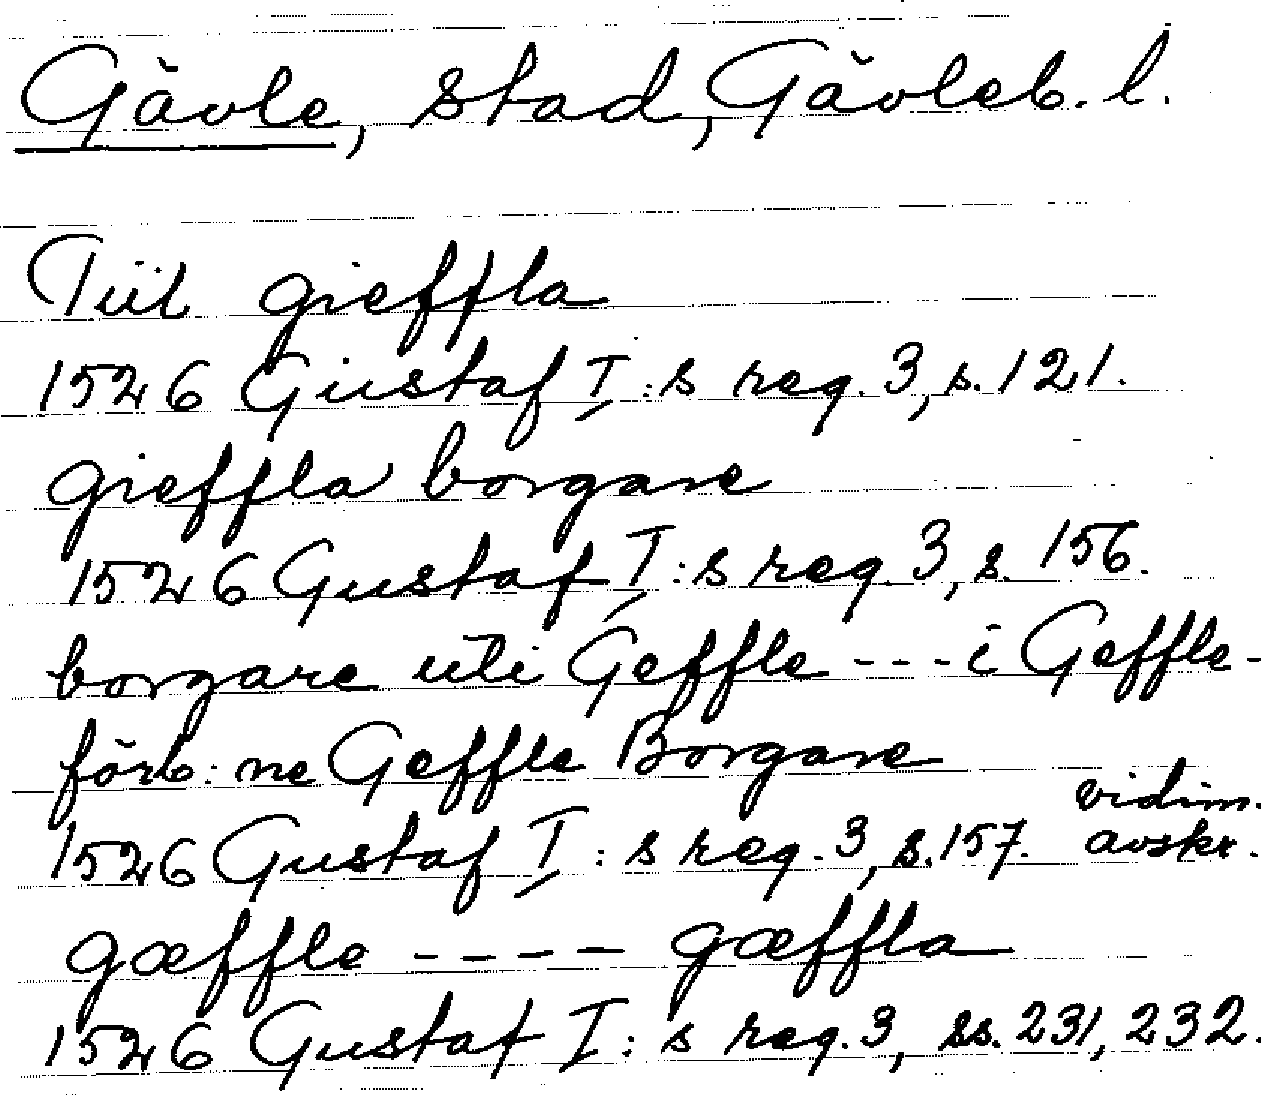 Gävle, stad, Gävleb. l.
Tiil gieffla
1526 Gustaf I:s reg. 3, s. 121.
gieffla borgare
1526 Gustaf I:s reg. 3, s. 156.
borgare uti Geffle --- i Geffle -
förb:ne Geffle Borgare
vidim.
1526 Gustaf I:s reg. 3, s. 157. avskr.
gæffle ---- gæffla
1526 Gustaf I:s reg. 3, ss. 231, 232.